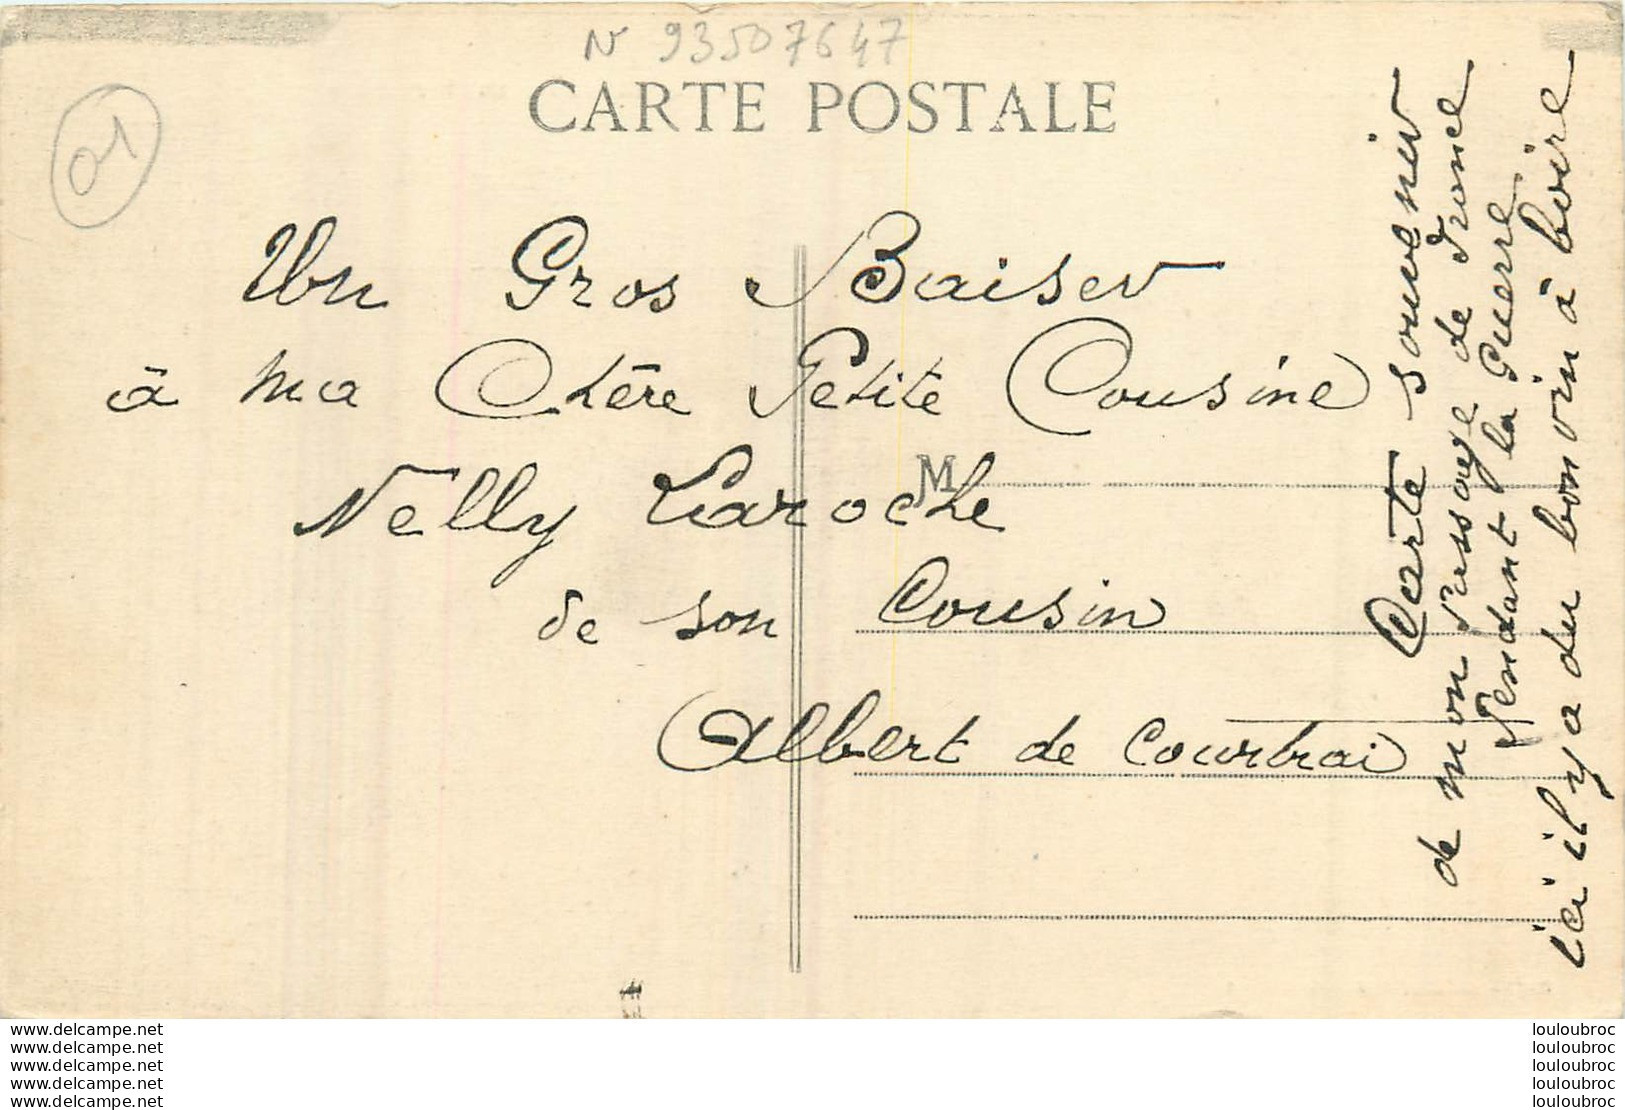 N° 93507647
01
CARTE POSTALE
Un Gros Baiser
à ma Chère Petite Cousine
Nelly Laroche
M
de son Cousin
Albert de Courtrai
Carte souvenir
de mon Passage de France
Pendant la Guerre
ici il y a du bon vin à boire
www.delcampe.net
www.delcampe.net
www.delcampe.net
www.delcampe.net
www.delcampe.net
louloubroc
louloubroc
louloubroc
louloubroc
louloubroc